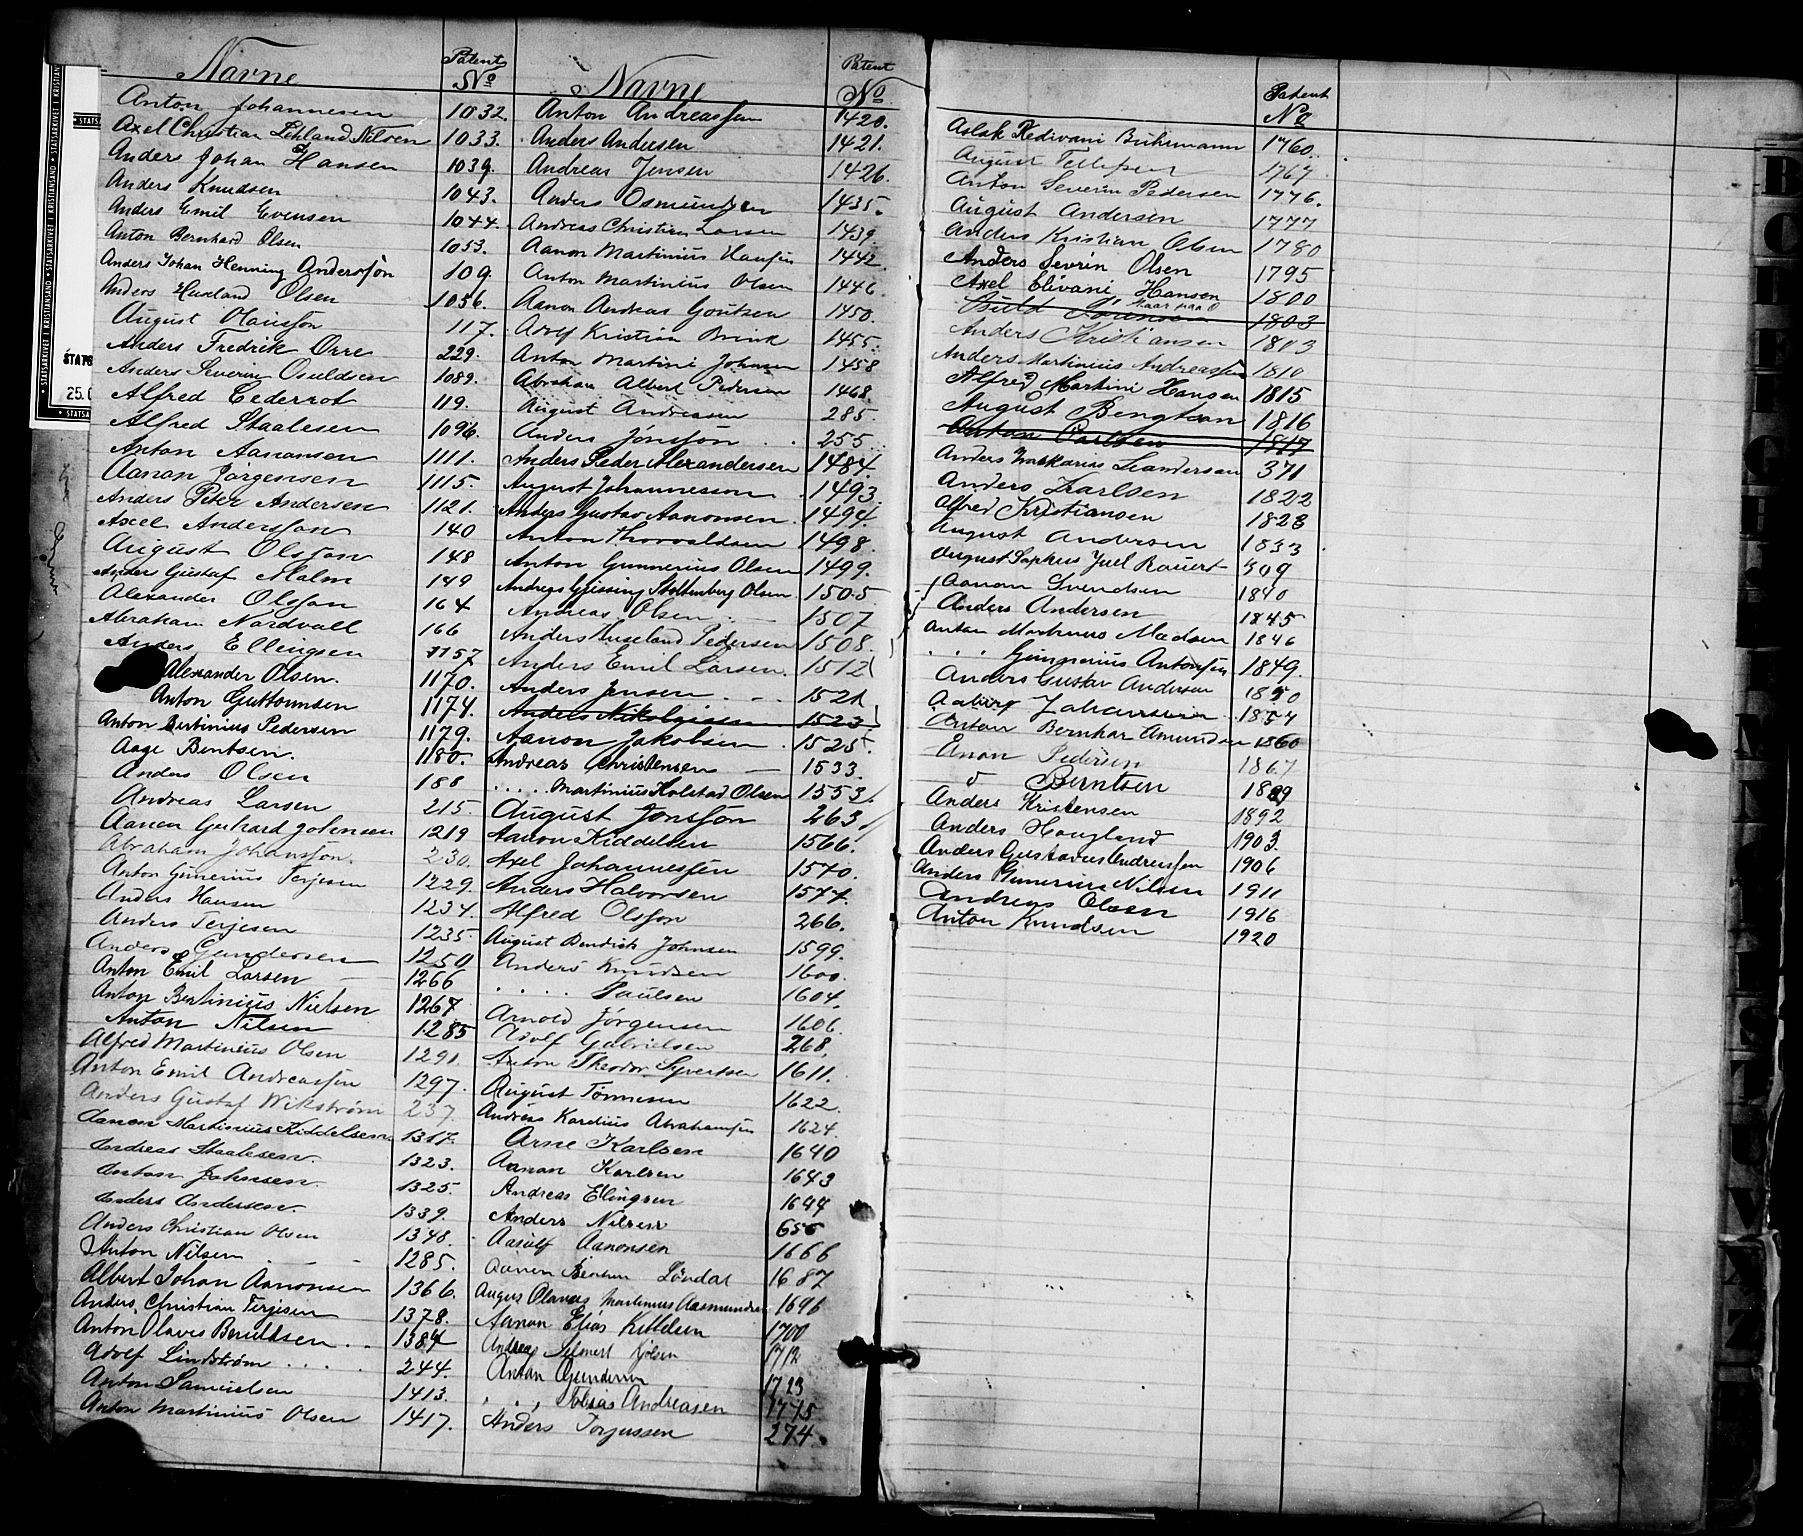 Navne Patent No
Anton Johannesen 1032.
Axel Christian Nilsen 1033.
Anders Johan Hansen 1039.
Anders Knudsen 1043.
Anders Emil Evensen 1044.
Anton Bernhard Olsen 1053.
Anders Johan Henning Andersson 109.
Anders Olsen 1056.
August Olausson 117.
Anders Fredrik Orre 229.
Anders Severin Osuldsen 1089.
Alfred Cederrot 119.
Alfred Staalesen 1096.
Anton Aanonsen 1111.
Aanan Jörgensen 1115.
Anders Peter Andersen 1121.
Axel Andersson 140
August Olsson 148
Anders Gustaf Malm 149
Alexander Olsson 164
Abraham Nordvall 166
Anders Ellingsen 1157
Alexander Olsen. 1170.
Anton Guttormsen 1174.
Anton Bertinius Pedersen 1179.
Aage Bentsen. 1180.
Anders Olsen 188
Andreas Larsen 215.
Aanen Gerhard Johnsen 1219
Abraham Johansson. 230.
Anton Gunerius Terjesen 1229.
Anders Hansen 1234.
Anders Terjesen 1235.
Anders Gundersen 1250
Anton Emil Larsen 1266
Anton Bertinius Nielsen 1267
Anton Nilsen 1285
Alfred Martinius Olsen 1291.
Anton Emil Andreassen 1297.
Anders Gustaf Wikström 237
Aanon Martinius Kiddelsen. 1317.
Andreas Staalesen. 1323.
Anton Johnsen. 1325.
Anders Andersen. 1339.
Anders Christian Olsen 1348.
Anton Nilsen 1285.
Albert Johan Aanonsen 1366.
Anders Christian Terjesen 1378.
Anton Olaves Berntsen . . 1384
Adolf Lindström . . . . 244.
Anton Samuelsen 1413.
Anton Martinius Olsen 1417.
Navne Patent No
Anton Andreassen 1420.
Anders Andersen 1421.
Andreas Jensen 1426.
Anders Osmundsen 1435.
Andreas Christian Larsen 1439.
Aanon Martinius Hansen 1442.
Anton Martinius Olsen 1446.
Aanon Andreas 1450.
Adolf Kristian Brink 1455.
Anton Martini Johnsen 1458
Abraham Albert Pedersen 1468.
August Andreasen 285.
Anders Jönsson . . 255
Anders Peder Alexandersen 1484.
August Johannesson 1493.
Anders Gustav Aanonsen. 1494.
Anton Thorvaldsen 1498.
Anton Gunnerius Olsen 1499.
Andreas Stoltenberg Olsen 1505
Andreas Olsen . 1507
Anders Huseland Pedersen 1508.
Anders Emil Larsen. 1512
Anders Jensen . . 1521
Anders Nikolaisen 1523
Aanon Jakobsen . 1525.
Andreas Christensen 1533.
. . . . . Martinius Holstad Olsen 1553.
August Jonsson 263.
Aanon Kiddelsen 1566.
Axel Johannessen 1570.
Anders Halvorsen 1577.
Alfred Olsson 266.
August Bendick Johnsen 1599.
Anders Knudsen 1600.
. . . . Paulsen 1604.
Arnold Jörgensen 1606.
Adolf Gabrielsen 268.
Anton Theodor Syvertsen 1611.
August Tönnesen 1622.
Andreas Kardius Abrahamsen 1624.
Arne Karlsen 1640
Aanon Karlsen 1643
Andreas Ellingsen 1644
Anders Nilsen 655
Aasulf Aanonsen 1666
Aanen Löndal 1687
August Olaves Martinius Aasmundsen 1696
Aanon Elias Kittelsen 1700
Andreas 1712
Anton Gundersen 1723
. . , Tobias Andreasen 1775
Anders Torjussen 274.
Patent No
Aslak Redivani Buhrmann 1760.
August Tellefsen 1767
Anton Severin Pedersen 1776.
August Andersen 1777
Anders Kristian Olsen 1780
Anders Sevrin Olsen 1795
Axel Elivani Hansen 1800
Sörensen staar paa O 1803
Anders Kristiansen 1803
Anders Martinius Andreassen 1810
Alfred Martini Hansen 1815
August Bengtson 1816
Anton Carlsen 1817
Anders Zakarias Leandersen 371
Anders Karlsen 1822
Alfred Kristiansen 1828
August Andersen 1833
August Sophus Juel Rauert 309
Aanon Svendsen 1840
Anders Andersen 1845
Anton Markus Madsen 1846
. . . Gunnerius Antonsen 1849.
Anders Gustav Andersen 1850
Johannesen 1854
Anton Bernhar Amundsen 1860
Enon Pedersen 1867
d Berntsen 1889
Anders Kristensen 1892
Anders Haugland 1903.
Anders Gustavus Andreassen 1906
Anders Gunerius Nilsen 1911
Andreas Olsen 1916
Anton Knudsen 1920